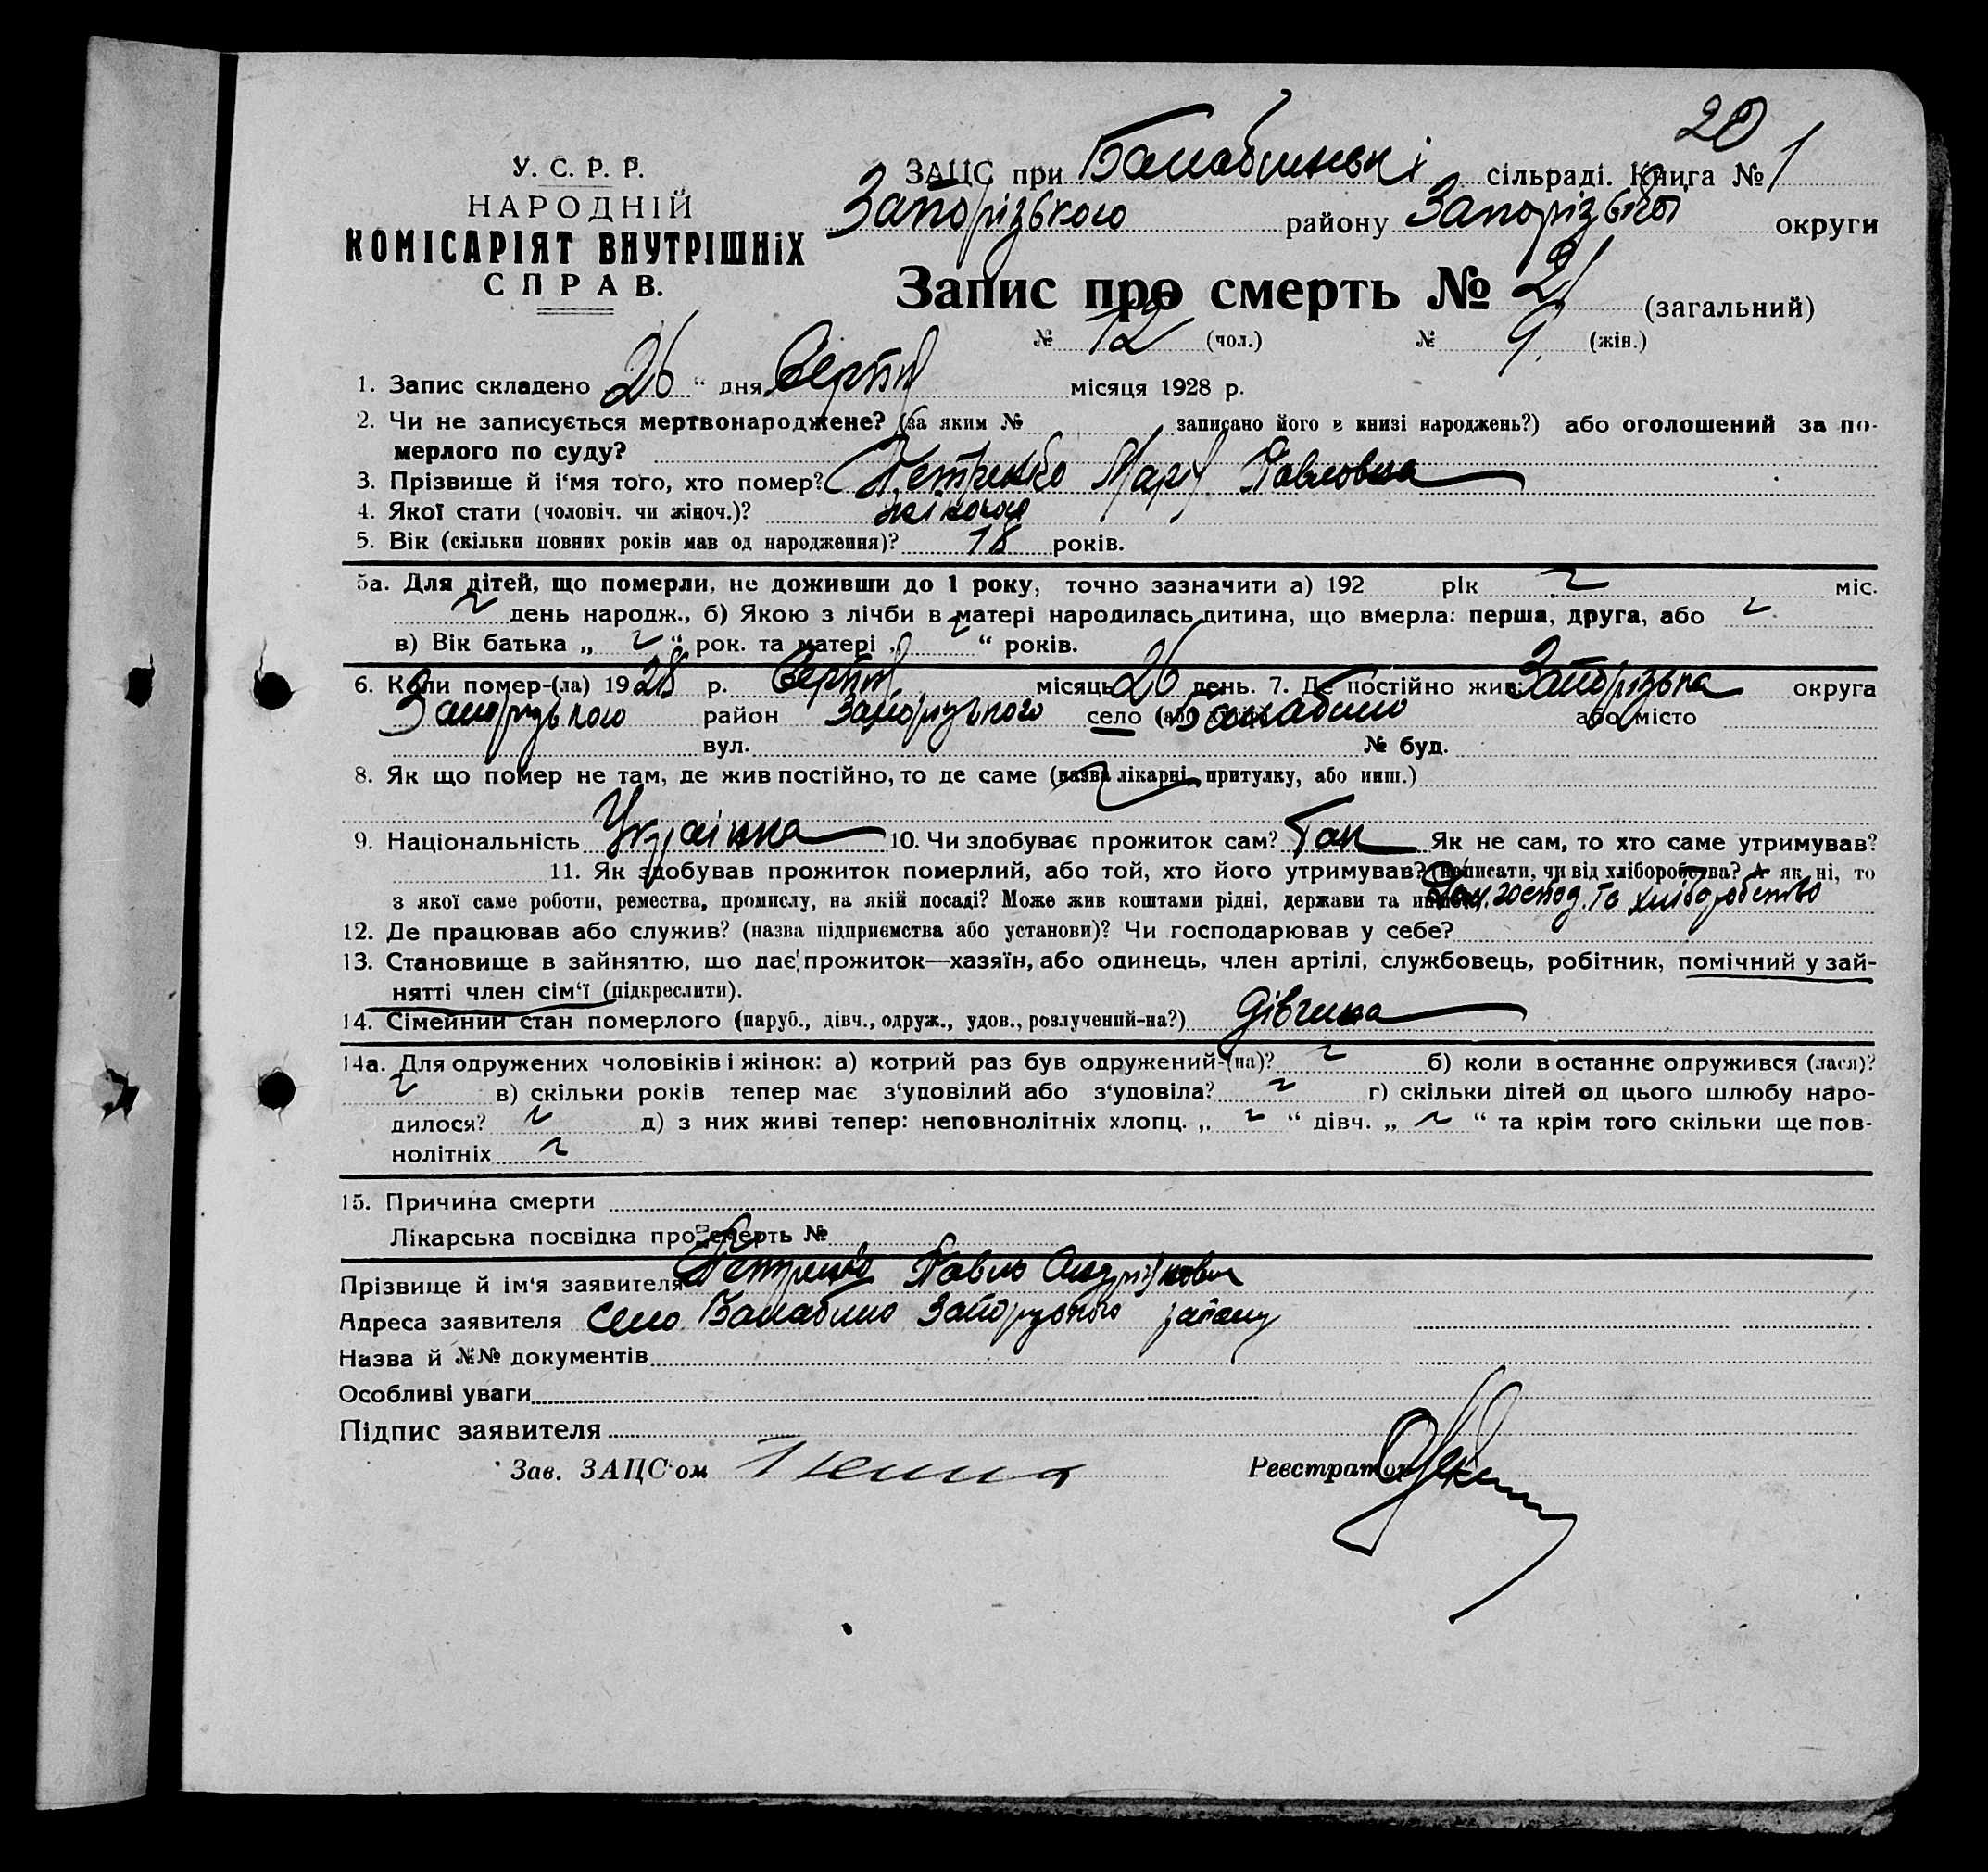 20
У. С. Р. Р.
НАРОДНІЙ
КОМІСАРІЯТ ВНУТРІШНІХ
СПРАВ.
ЗАЦС при Балабинські сільраді. Книга № 1
Запорізького району Запорізької округи
Запис про смерть № 21 (загальний)
№ 12 (чол.) № 9 (жін.)
1. Запис складено 26 “ дня Серпня місяця 1928 р.
2. Чи не записується мертвонароджене? (за яким № записано його в книзі народжень?) або оголошений за по-
мерлого по суду?
3. Прізвище й і'мя того, хто помер? Петренко Марія Павловна
4. Якої стати (чоловіч. чи жіноч.)? жіночої
5. Вік (скільки повних років мав од народження)? 18 років.
5а. Для дітей, що померли, не доживши до 1 року, точно зазначити а) 192 рік міс.
день народж., б) Якою з лічби в матері народилась дитина, що вмерла: перша, друга, або
в) Вік батька „ “ рок. та матері „ “ років.
6. Коли помер-(ла) 1928 р. Серпня місяць 26 день. 7. Де постійно жив: Запорізька округа
Запорізького район Запорізького село (або Балабино або місто
вул. № буд.
8. Як що помер не там, де жив постійно, то де саме (назва лікарні, притулку, або инш.)
9. Національність Українка 10. Чи здобуває прожиток сам? Так Як не сам, то хто саме утримував?
11. Як здобував прожиток померлий, або той, хто його утримував? (написати, чи від хліборобства? А як ні, то
з якої саме роботи, ремества, промислу, на якій посаді? Може жив коштами рідні, держави та господ. та хліборобство
12. Де працював або служив? (назва підприємства або установи)? Чи господарював у себе?
13. Становище в зайняттю, що дає прожиток—хазяїн, або одинець, член артілі, службовець, робітник, помічний у зай-
нятті член сім'ї (підкреслити).
14. Сімейний стан померлого (паруб., дівч., одруж., удов., розлучений-на?) дівчина
14а. Для одружених чоловіків і жінок: а) котрий раз був одружений-(на)? б) коли в останнє одружився (лася)?
в) скільки років тепер має з'удовілий або з'удовіла? г) скільки дітей од цього шлюбу наро-
дилося? д) з них живі тепер: неповнолітніх хлопц. „ “ дівч. „ “ та крім того скільки ще пов-
нолітніх
15. Причина смерти
Лікарська посвідка про смерть №
Прізвище й ім'я заявителя Петренко Павло
Адреса заявителя село Балабино Запорізького району
Назва й №№ документів
Особливі уваги
Підпис заявителя
Зав. ЗАЦС'ом
Реєстратор